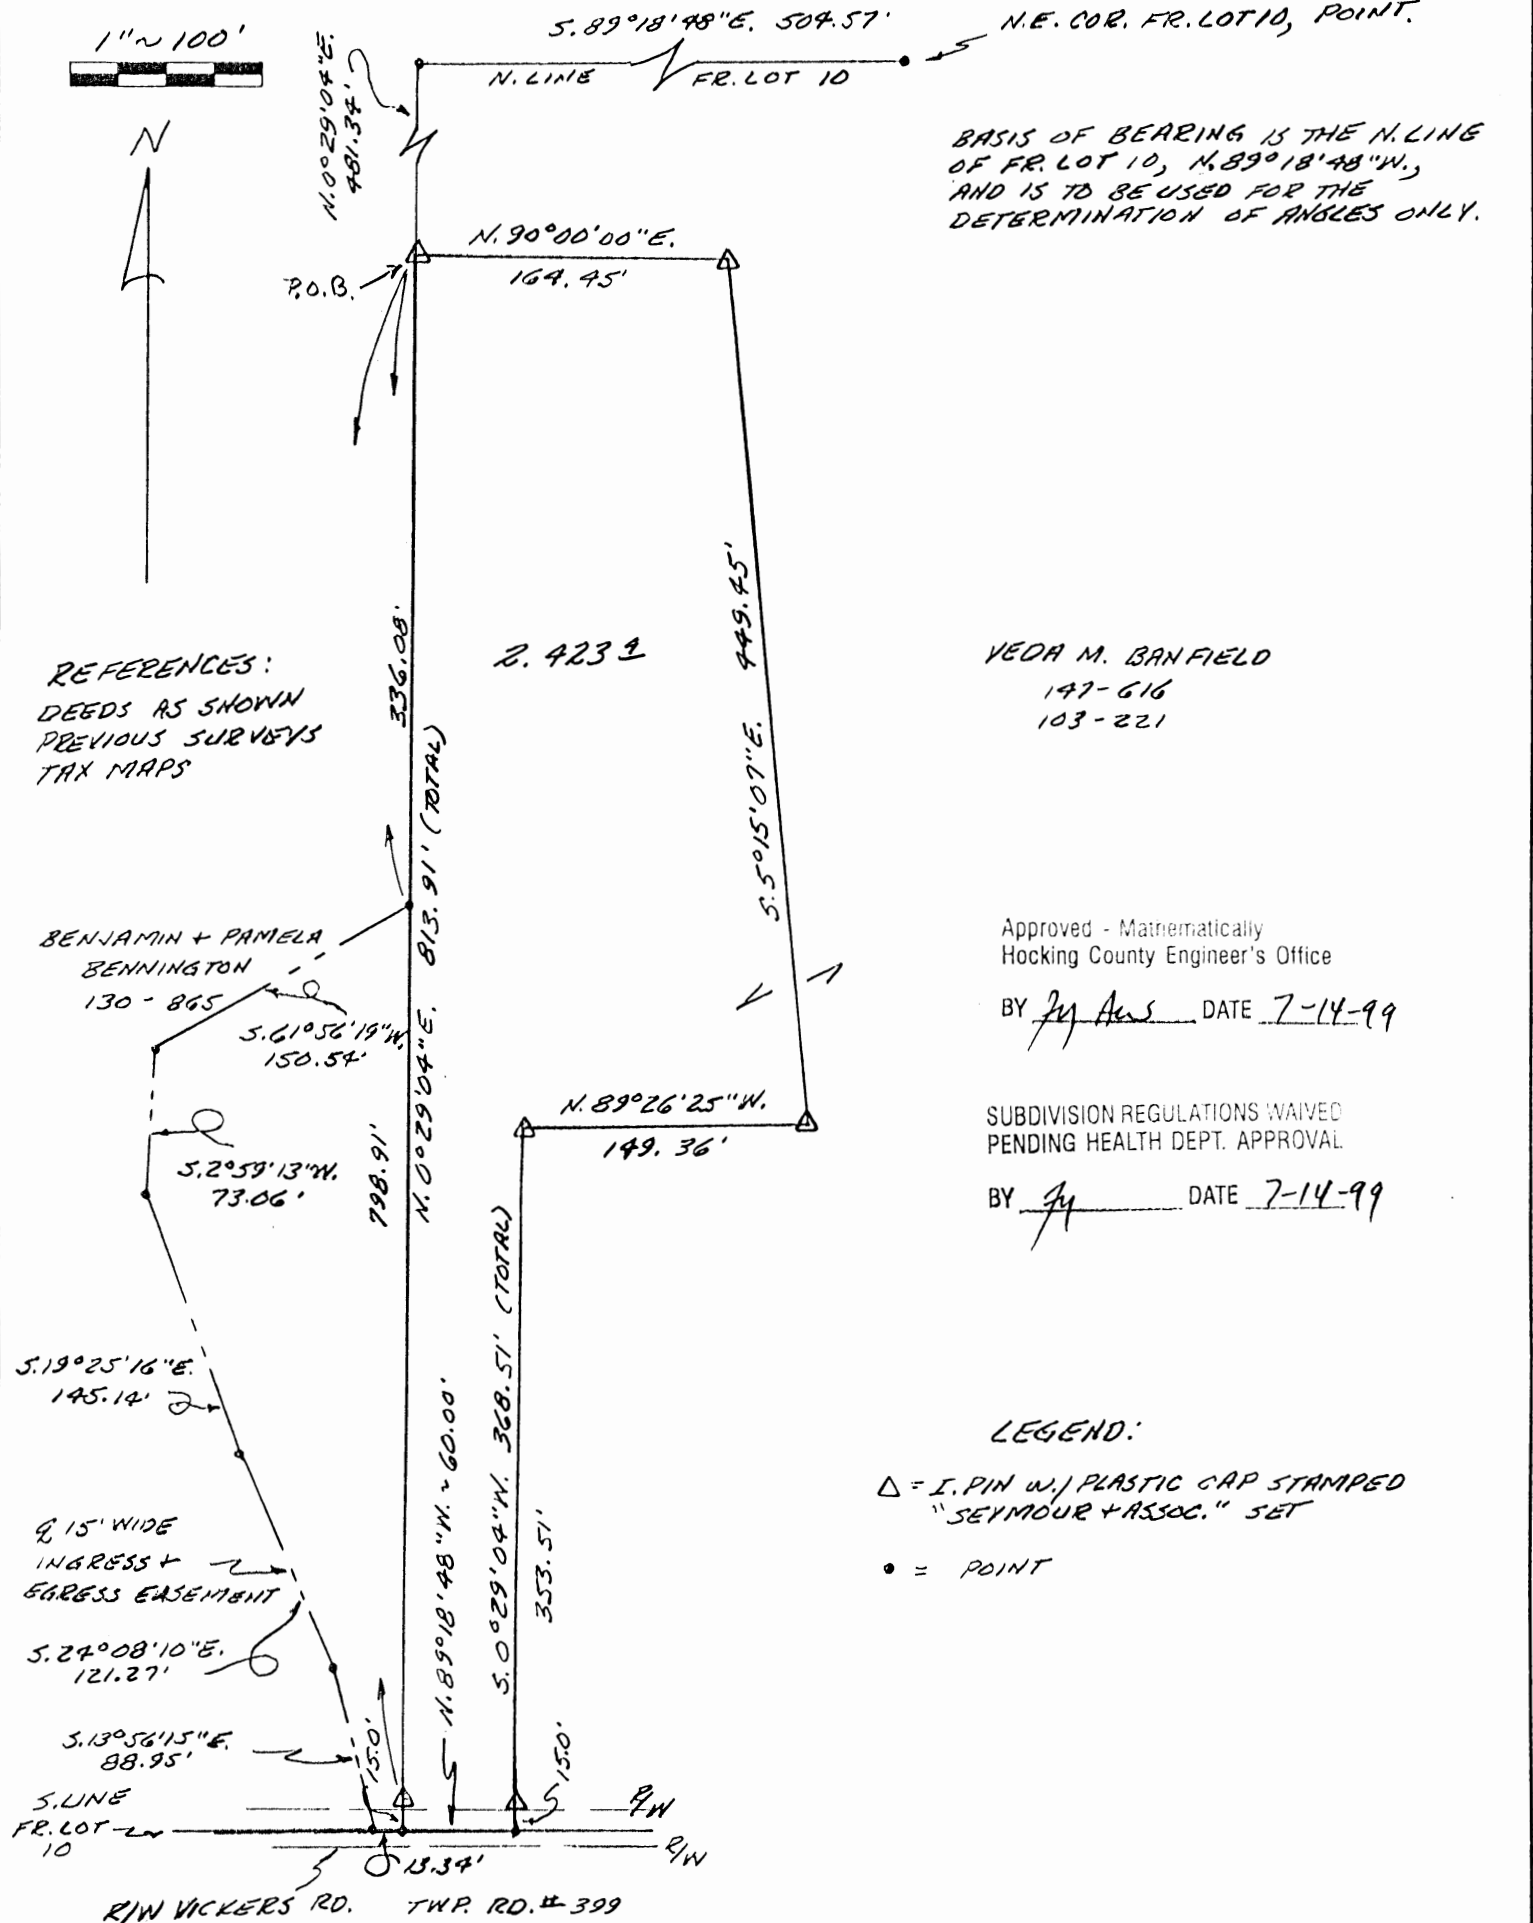 1"~100'
S.89°18'48"E. 504.57'
N.E. COR. FR. LOT 10, POINT.
N. LINE FR. LOT 10
N.0°29'04"E.
481.34'
N
BASIS OF BEARING IS THE N. LINE
OF FR. LOT 10, N.89°18'48"W.,
AND IS TO BE USED FOR THE
DETERMINATION OF ANGLES ONLY.
N.90°00'00"E.
164.45'
P.O.B.
336.08'
2.423
449.45'
S.5°15'07"E.
VEDA M. BANFIELD
147-616
103-221
REFERENCES:
DEEDS AS SHOWN
PREVIOUS SURVEYS
TAX MAPS
N.0°29'04"E. 813.91' (TOTAL)
798.91'
BENJAMIN + PAMELA
BENNINGTON
130-865
S.61°56'19"W.
150.54'
Approved - Mathematically
Hocking County Engineer's Office
BY DATE 7-14-99
N.89°26'25"W.
149.36'
SUBDIVISION REGULATIONS WAIVED
PENDING HEALTH DEPT. APPROVAL
BY DATE 7-14-99
S.2°59'13"W.
73.06'
S.0°29'04"W. 368.51' (TOTAL)
353.51'
S.19°25'16"E.
145.14'
N.89°18'48"W. ~ 60.00'
LEGEND:
△ = I. PIN W./ PLASTIC CAP STAMPED
"SEYMOUR + ASSOC." SET
• = POINT
℄ 15' WIDE
INGRESS +
EGRESS EASEMENT
S.24°08'10"E.
121.27'
S.13°56'15"E.
88.95'
15.0'
15.0'
S. LINE
FR. LOT
10
R/W
R/W
13.34'
R/W VICKERS RD. TWP. RD. # 399